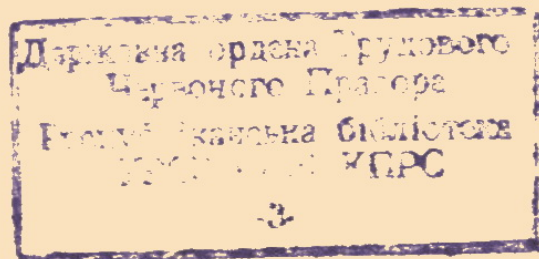 Державна ордена Трудового
Червоного Прапора
Республіканська бібліотека
КПРС
-3-